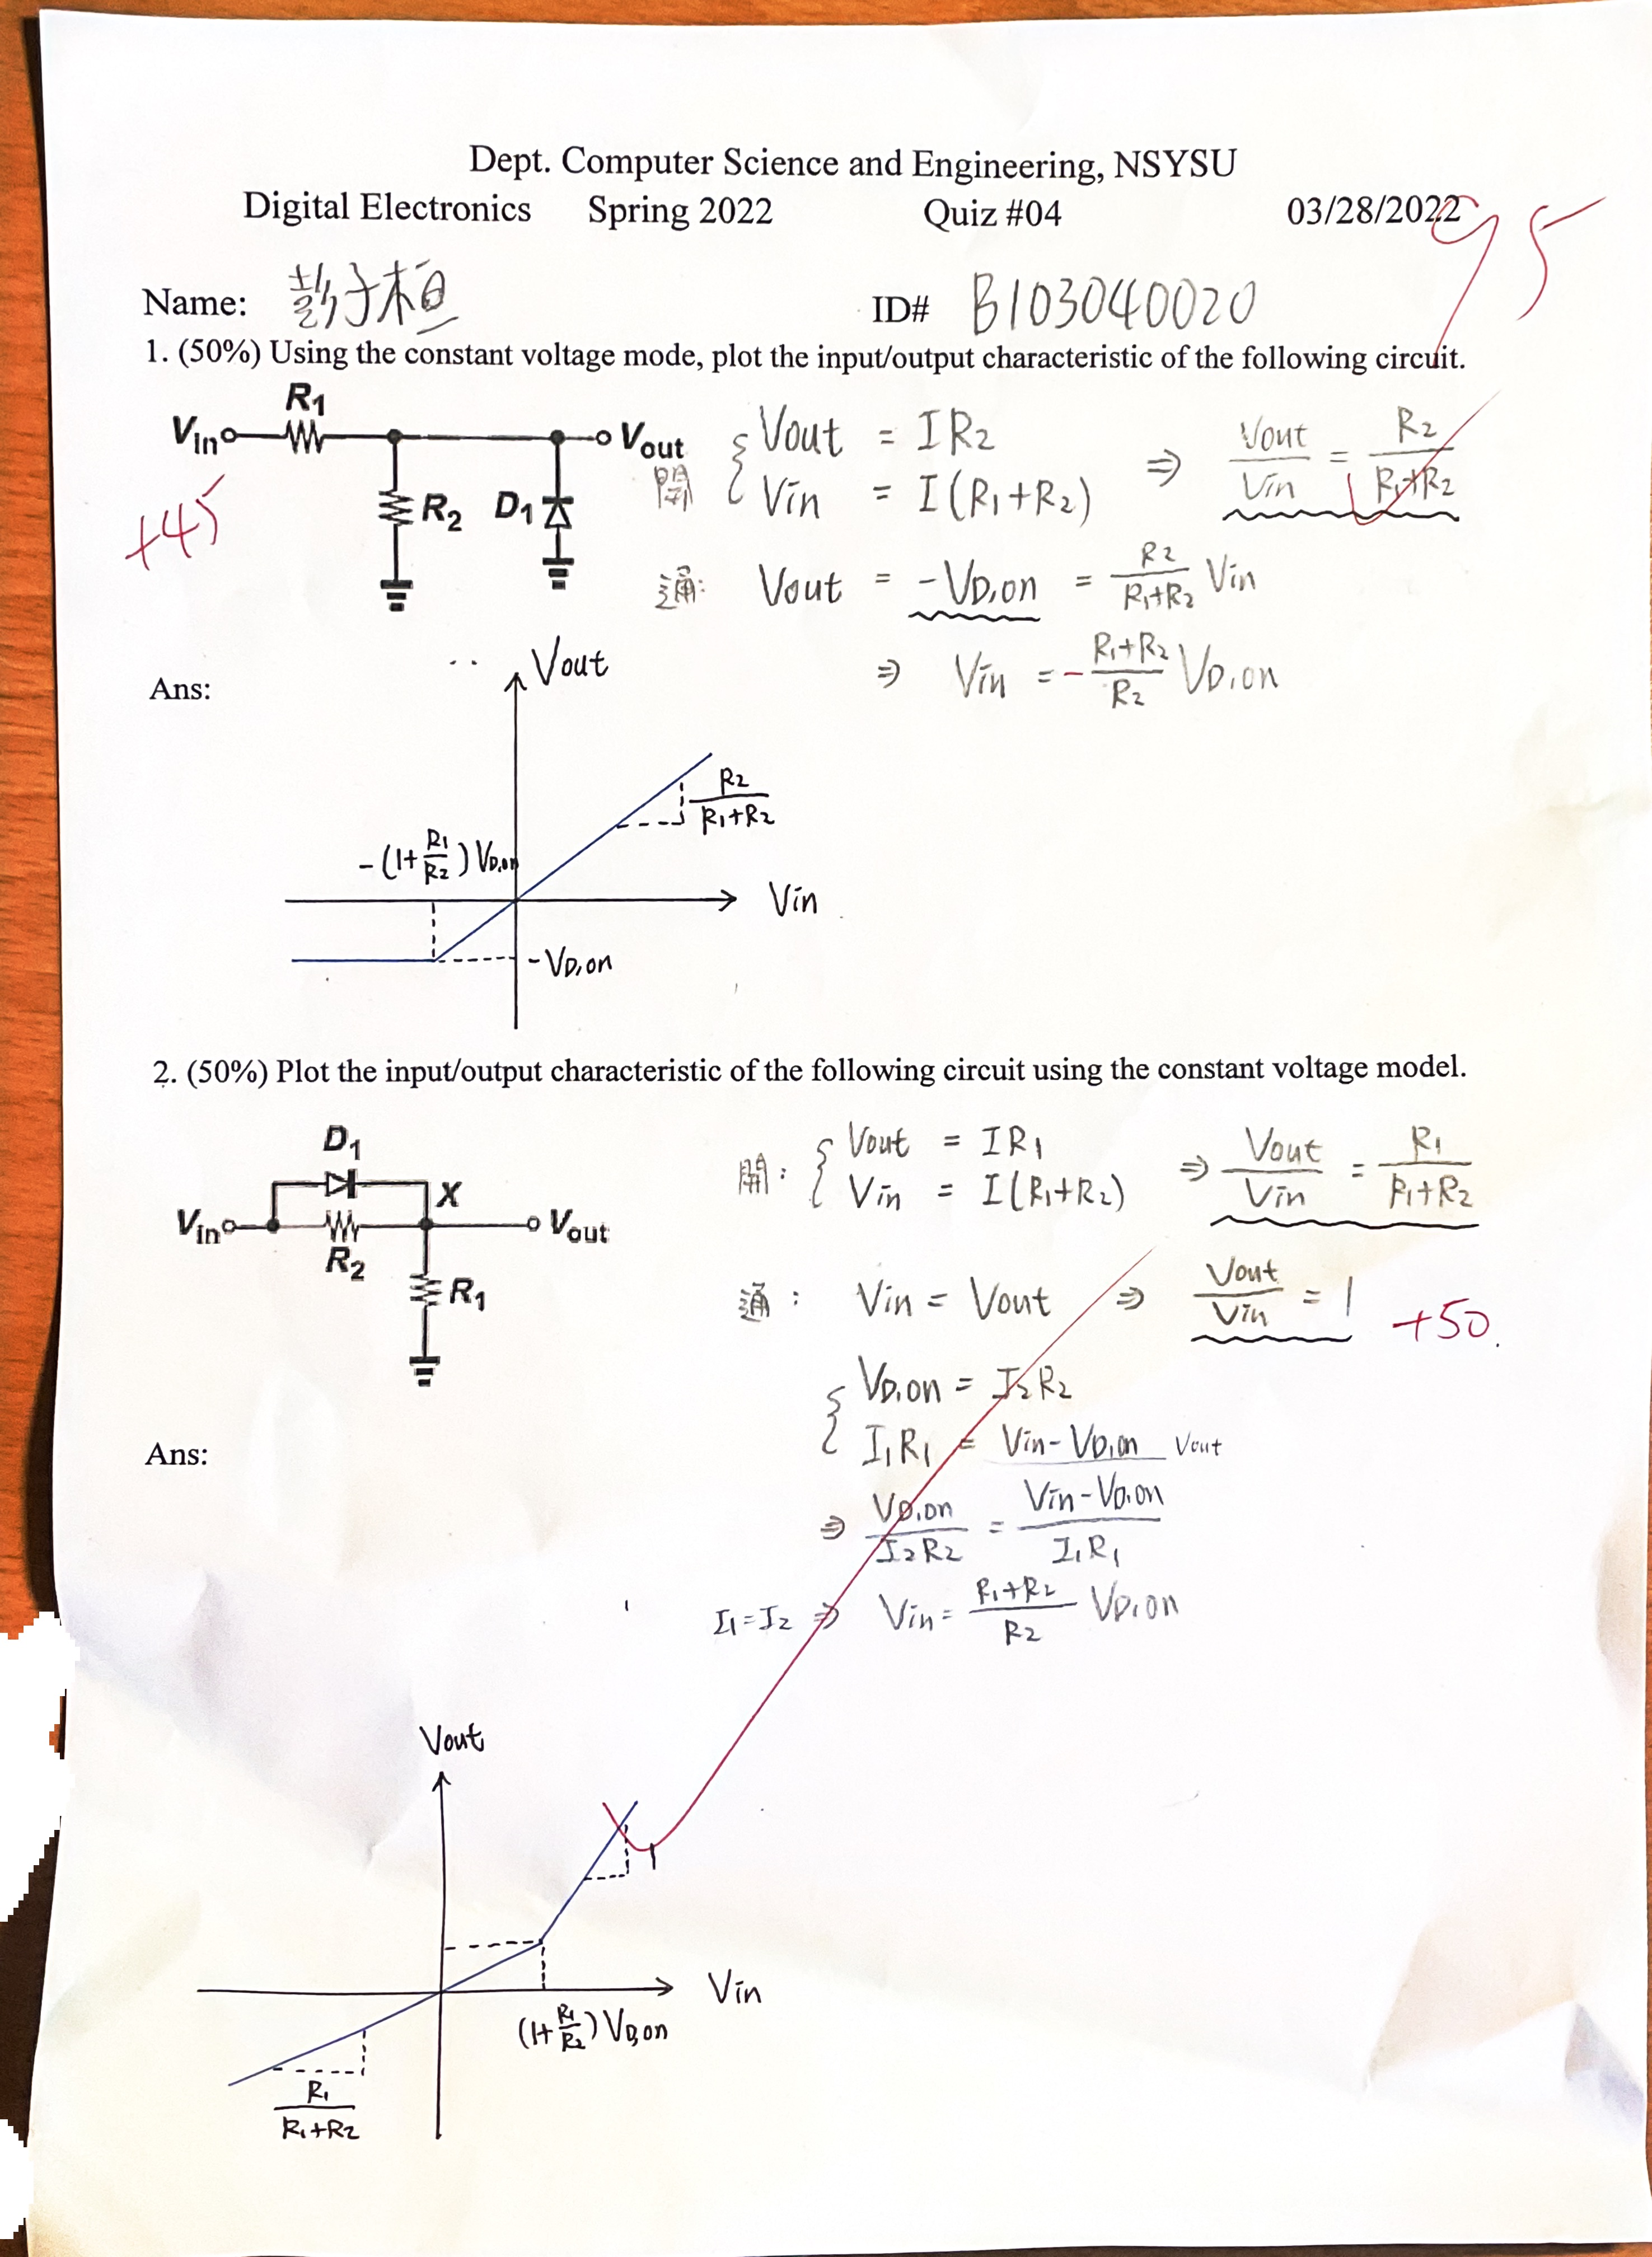 Dept. Computer Science and Engineering, NSYSU
Digital Electronics Spring 2022 Quiz #04 03/28/2022
95
Name: 彭子桓 ID# B103040020
1. (50%) Using the constant voltage mode, plot the input/output characteristic of the following circuit.
R1
Vin Vout
R2 D1
+45
開 { Vout = IR2
Vin = I(R1+R2) ⇒ Vout/Vin = R2/(R1+R2)
通: Vout = -VD,on = R2/(R1+R2) Vin
⇒ Vin = - (R1+R2)/R2 VD,on
Ans:
Vout
R2/(R1+R2)
-(1+R1/R2) VD,on
Vin
-VD,on
2. (50%) Plot the input/output characteristic of the following circuit using the constant voltage model.
D1
X
Vin Vout
R2
R1
開: { Vout = IR1
Vin = I(R1+R2) ⇒ Vout/Vin = R1/(R1+R2)
通: Vin = Vout ⇒ Vout/Vin = 1
+50
{ VD,on = I2R2
I1R1 = Vin-VD,on Vout
⇒ VD,on/I2R2 = (Vin-VD,on)/I1R1
I1=I2 ⇒ Vin = (R1+R2)/R2 VD,on
Ans:
Vout
1
Vin
(1+R1/R2) VD,on
R1/(R1+R2)